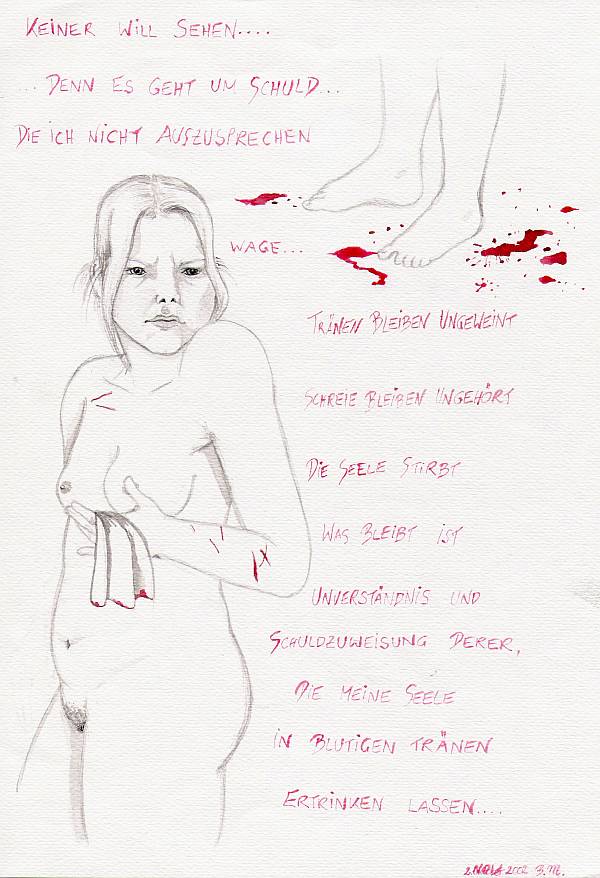 KEINER WILL SEHEN....
... DENN ES GEHT UM SCHULD...
DIE ICH NICHT AUSZUSPRECHEN
WAGE...
TRÄNEN BLEIBEN UNGEWEINT
SCHREIE BLEIBEN UNGEHÖRT
DIE SEELE STIRBT
WAS BLEIBT IST
UNVERSTÄNDNIS UND
SCHULDZUWEISUNG DERER,
DIE MEINE SEELE
IN BLUTIGEN TRÄNEN
ERTRINKEN LASSEN....
2002 B.M.